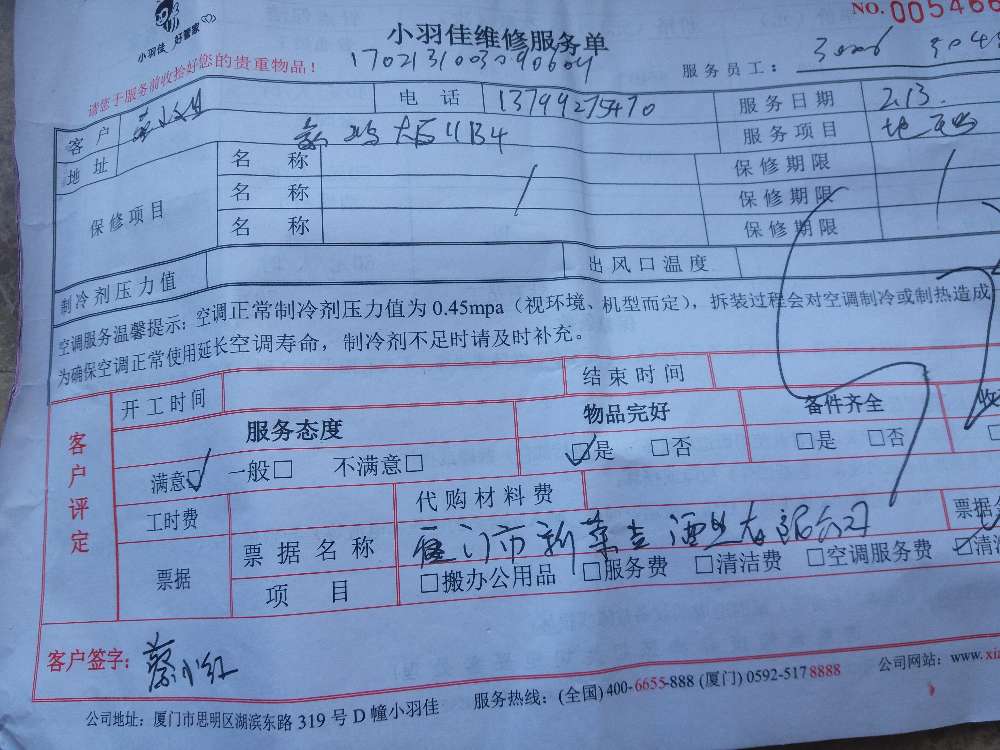 NO. 005466
小羽佳 好管家
小羽佳维修服务单
1702131003090604
请您于服务前收拾好您的贵重物品！
服务员工：
客户 电话 13799275470 服务日期 2.13.
地址 服务项目
保修项目 名称 保修期限
名称 保修期限
名称 保修期限
制冷剂压力值 出风口温度
空调服务温馨提示：空调正常制冷剂压力值为 0.45mpa（视环境、机型而定），拆装过程会对空调制冷或制热造成
为确保空调正常使用延长空调寿命，制冷剂不足时请及时补充。
客户评定 开工时间 结束时间
服务态度 物品完好 备件齐全
满意☑ 一般□ 不满意□ ☑是 □否 □是 □否
工时费 代购材料费
票据 票据名称 票据
项目 □搬办公用品 □服务费 □清洁费 □空调服务费 ☑清
客户签字： 蔡小红
公司地址：厦门市思明区湖滨东路 319 号 D 幢小羽佳 服务热线：(全国) 400-6655-888 (厦门) 0592-5178888 公司网站：www.xia